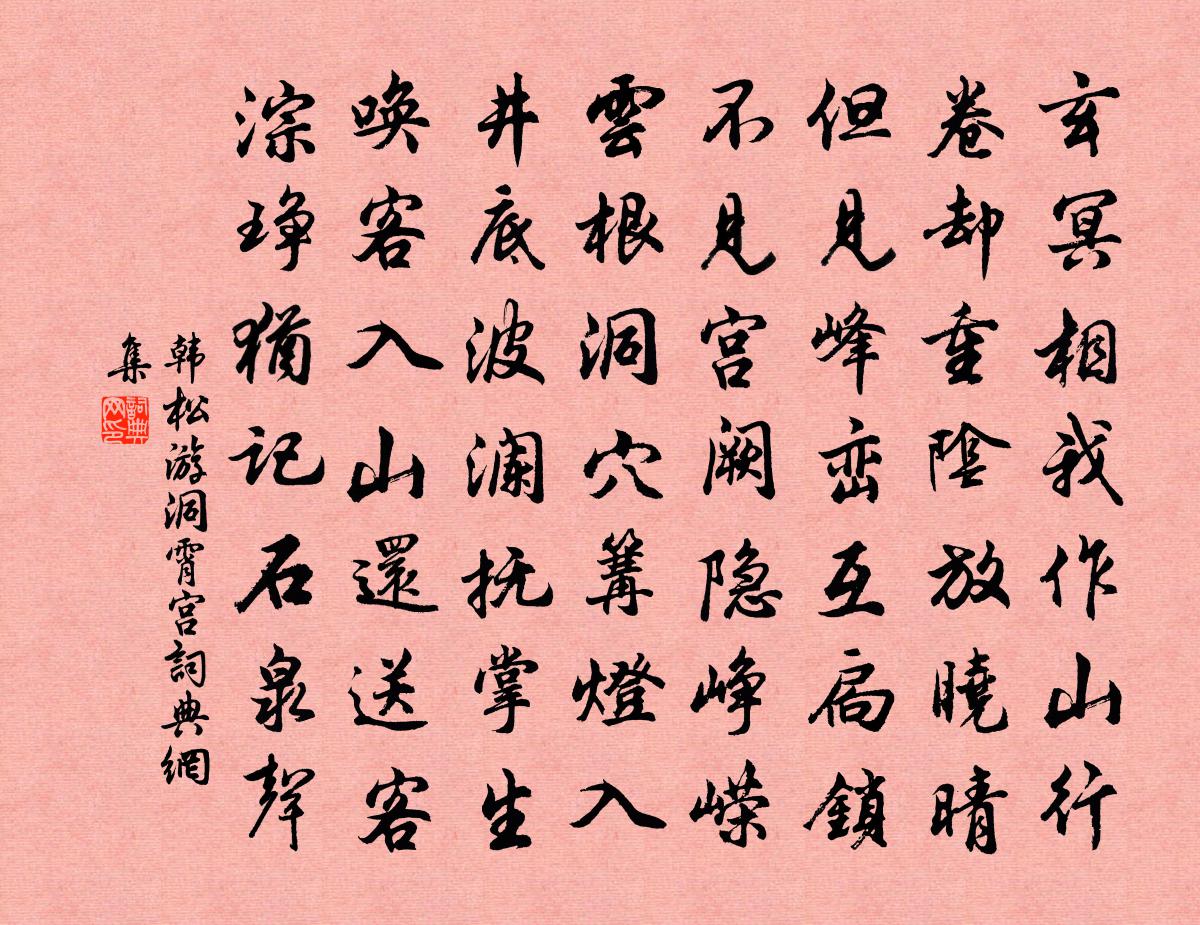 玄冥相我作山行
卷却重陰放曉晴
但見峰巒互扃鎖
不見宫阙隐峥嵘
雲根洞穴篝燈入
井底波澜抚掌生
唤客入山還送客
淙琤猶记石泉聲
韩松游洞霄宫詞典網
集
詞典网印